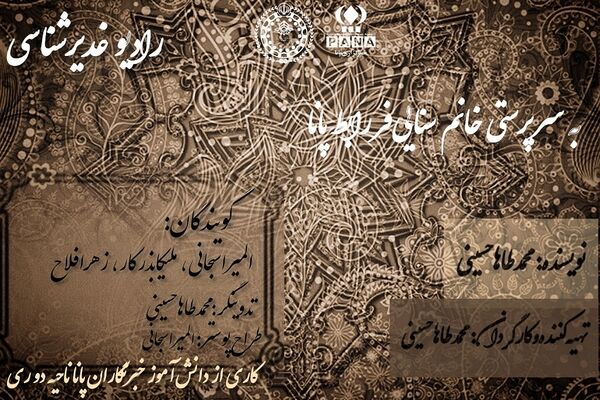 رادیو غدیرشناسی
PANA
به سرپرستی خانم سنایی فر رابط پانا
گویندگان:
المیرا سبحانی، ملیکا بذرکار، زهرا فلاح
تدوینگر: محمدطاها حسینی
طراح پوستر: المیرا سبحانی
نویسنده: محمدطاها حسینی
تهیه کننده و کارگردان: محمدطاها حسینی
کاری از دانش آموز خبرنگاران پانا ناحیه دو ری